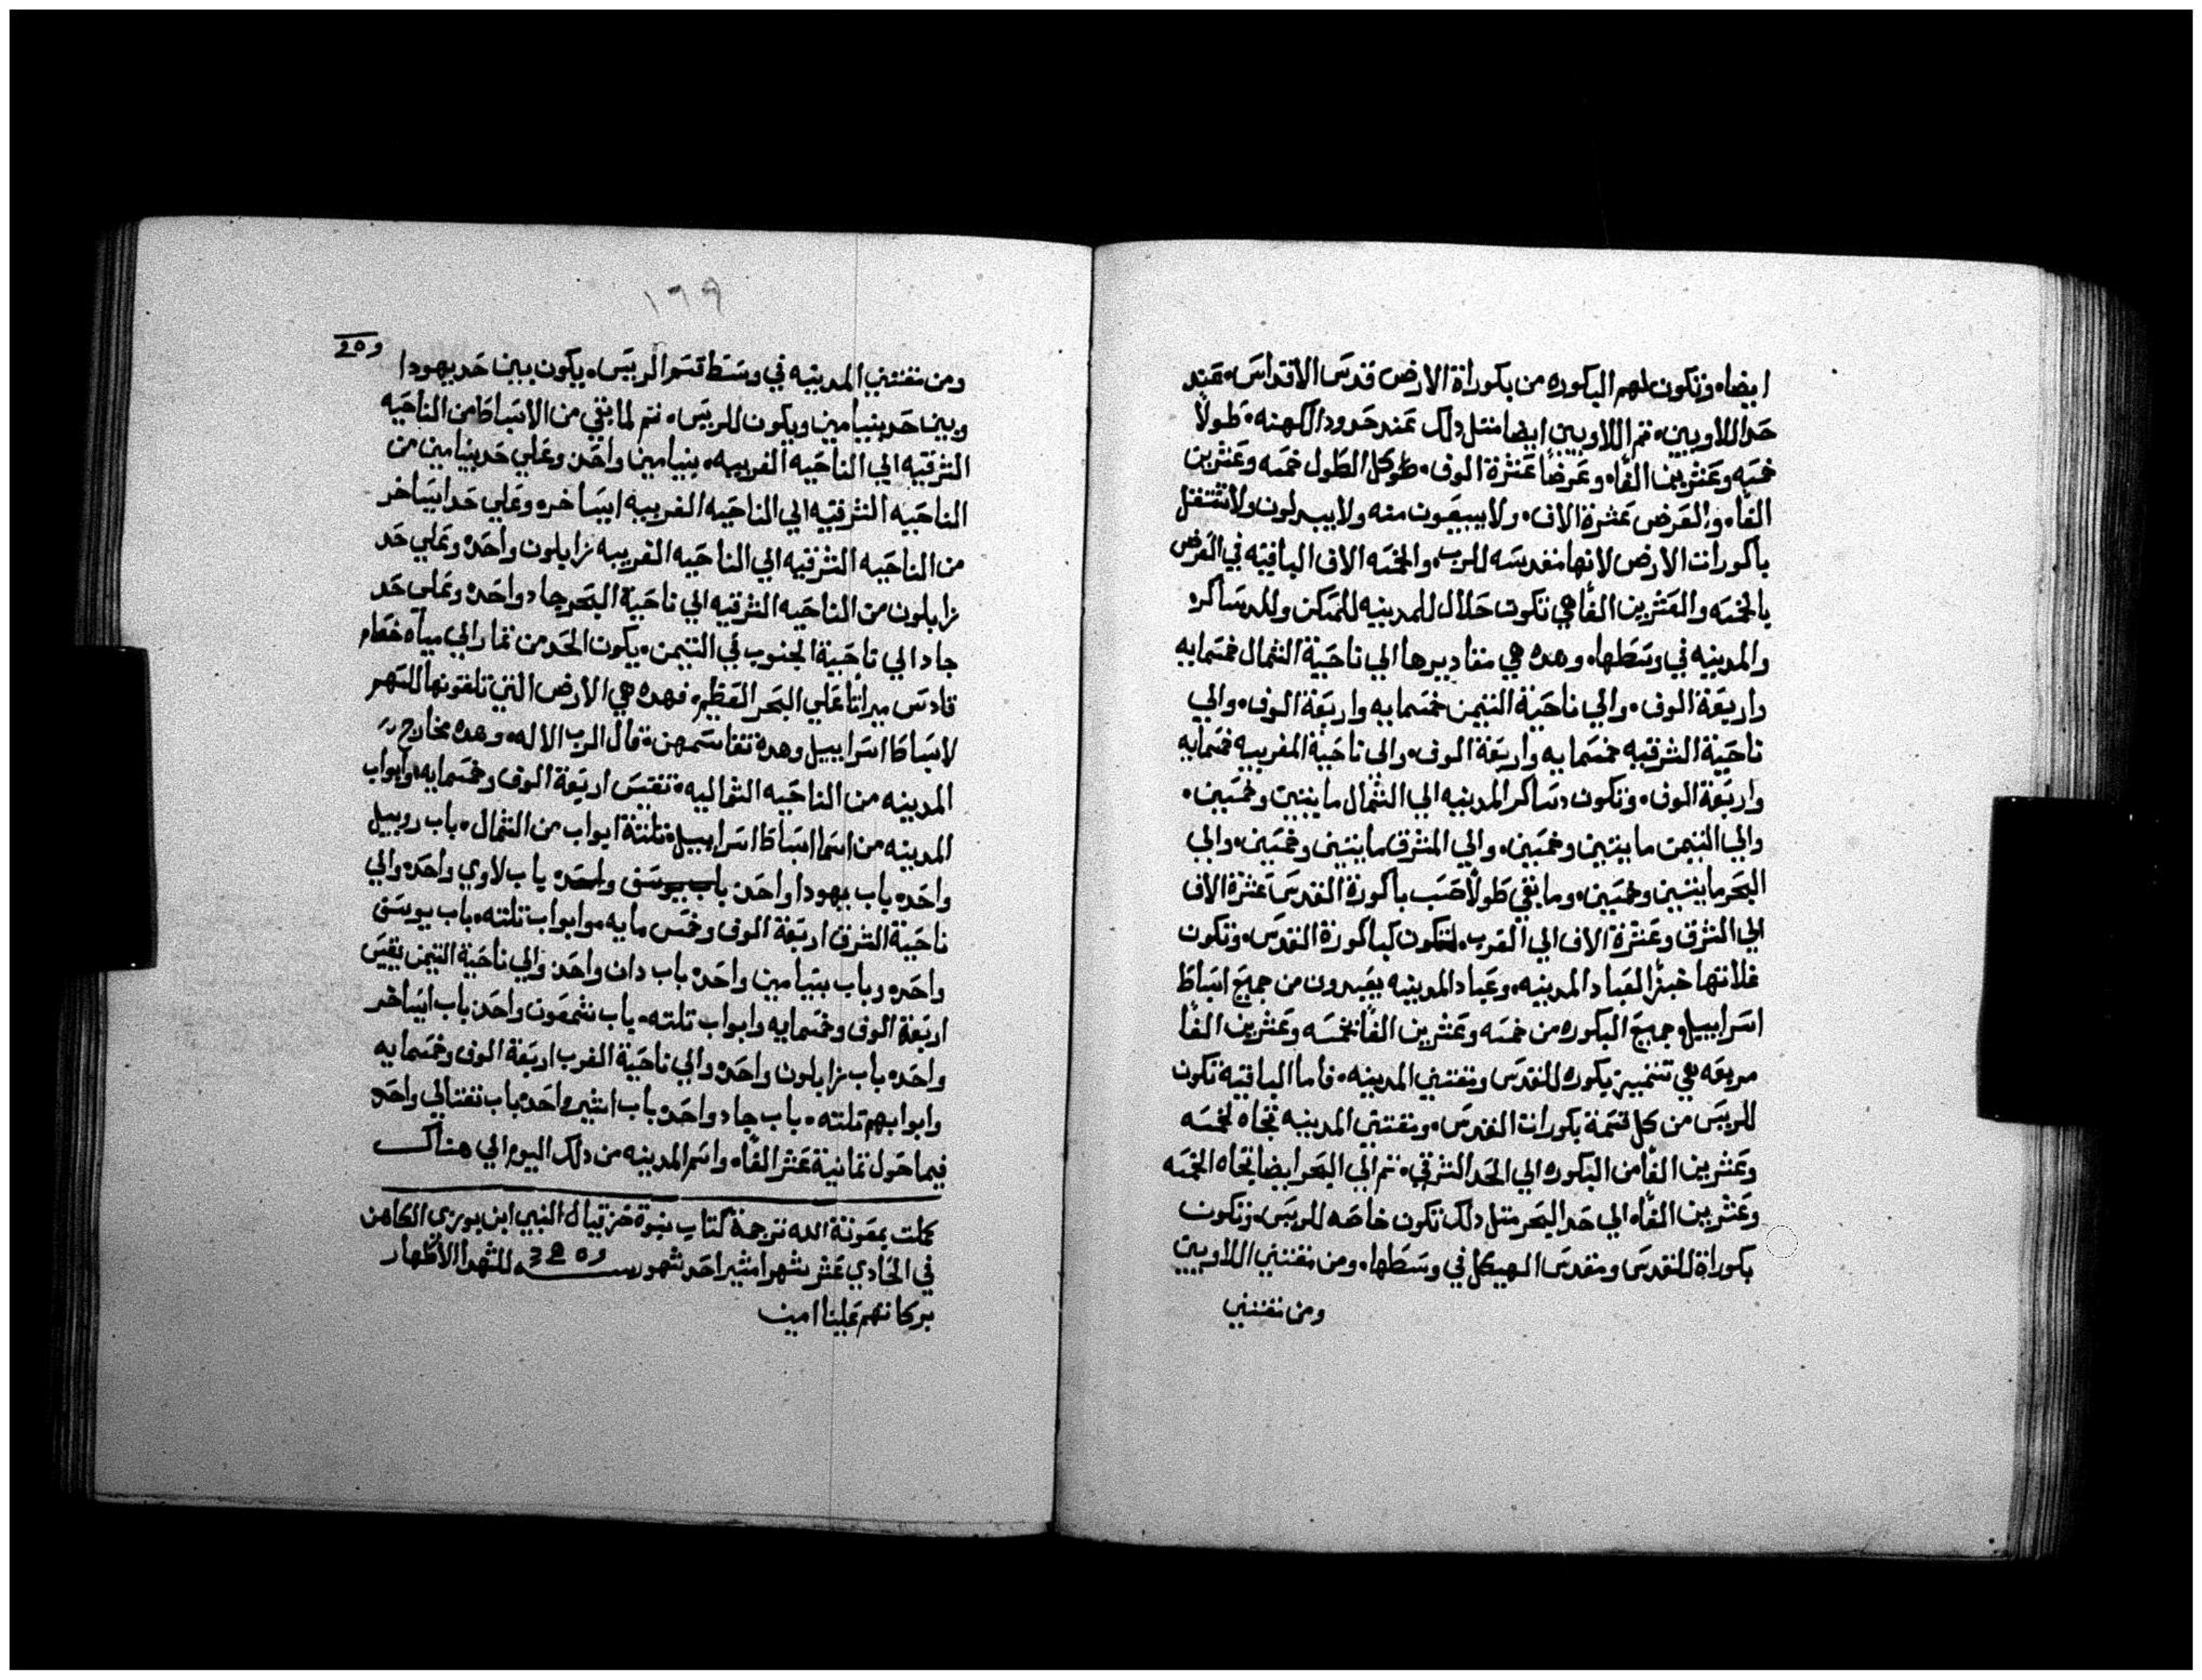 ايضا، وتكون لهم البكوره من بكوراة الارض قدس الاقداس، عند
حد اللاويين، تم اللاويين ايضا متل دلك عند حدود الكهنه، طولاً
خمسه وعشرين الفاً، وعرضاً عشرة الوف، طو كل الطول خمسه وعشرين
الفاً، والعرض عشرة الاف، ولا يبيعون منه ولا يبدلون ولا تنتقل
باكورات الارض لانها مقدسه للرب، والخمسه الاف الباقيه في العرض
بالخمسه والعشرين الفاً هي تكون حلال للمدينه للمسكن وللدساكره
والمدينه في وسطها، وهده هي مقاديرها الي ناحية الشمال خمسمايه
واربعة الوف، والي ناحية التيمن خمسمايه واربعة الوف، والي
ناحية الشرقيه خمسمايه واربعة الوف، والي ناحية المغربيه خمسمايه
واربعة الوف، وتكون دساكر المدينه الي الشمال مايتين وخمسين،
والي التيمن مايتين وخمسين، والي المشرق مايتين وخمسين، والي
البحر مايتين وخمسين، وما بقي طولاً حسب باكورة القدس عشرة الاف
الي الشرق وعشرة الاف الي الغرب، لتكون كباكورة القدس، وتكون
غلاتها خبزاً لعباد المدينه، وعباد المدينه يعبدون من جميع اسباط
اسراييل وجميع البكوره من خمسه وعشرين الفاً بخمسه وعشرين الفاً
مربعه هي بكوره للقدس ومقتني المدينه، فاما الباقيه تكون
للريس من كل قسمة بكورات القدس، ومقتني المدينه تجاه لخمسه
وعشرين الفاً من البكوره الي الحد الشرقي، تم الي البحر ايضا تجاه الخمسه
وعشرين الفاً، الي حد البحر متل دلك تكون خاصه للريس، وتكون
بكوراة للقدس ومقدس الهيكل في وسطها، ومن مقتني اللاويين
ومن مقتني
١٦٩
ومن مقتني المدينه في وسط قسم الريس، يكون بين حد يهودا
وبين حد بنيامين ويكون للريس، تم لما بقي من الاسباط من الناحيه
الشرقيه الي الناحيه الغربيه، بنيامين واحد، وعلي حد بنيامين من
الناحيه الشرقيه الي الناحيه الغربيه ايساخره وعلي حد ايساخر
من الناحيه الشرقيه الي الناحيه الغربيه زابلون واحد، وعلي حد
زابلون من الناحيه الشرقيه الي ناحية البحر جاد واحد، وعلي حد
جاد الي ناحية الجنوب في التيمن، يكون الحد من تمار الي مياه خصام
قادس ميراتاً علي البحر العظيم، فهده هي الارض التي تلقونها للسهم
لاسباط اسراييل وهده تقاسمهن، قال الرب الاله، وهده مخارج
المدينه من الناحيه الشماليه، تقيس اربعة الوف وخمسمايه، وابواب
المدينه من اسما اسباط اسراييل، تلتة ابواب من الشمال، باب روبيل
واحد، باب يهودا واحد، باب يوسف واحد، باب لاوي واحد، والي
ناحية الشرق اربعة الوف وخمس مايه، وابواب تلته، باب يوسف
واحد، وباب بنيامين واحد، باب دان واحد، والي ناحية التيمن يقيس
اربعة الوف وخمسمايه وابواب تلته، باب شمعون واحد، باب ايساخر
واحد، باب زابلون واحد، والي ناحية الغرب اربعة الوف وخمسمايه
وابوابهم تلته، باب جاد واحد، باب اشير واحد، باب نفتالي واحد
فيما حول تمانية عشر الفاً، واسم المدينه من دلك اليوم الي هناك
كملت بمعونة الله ترجمة كتاب نبوة حزقيال النبي ابن بوزي الكاهن
في الحادي عشر شهر امشير احد شهور سنه للشهدا الاطهار
بركاتهم علينا امين